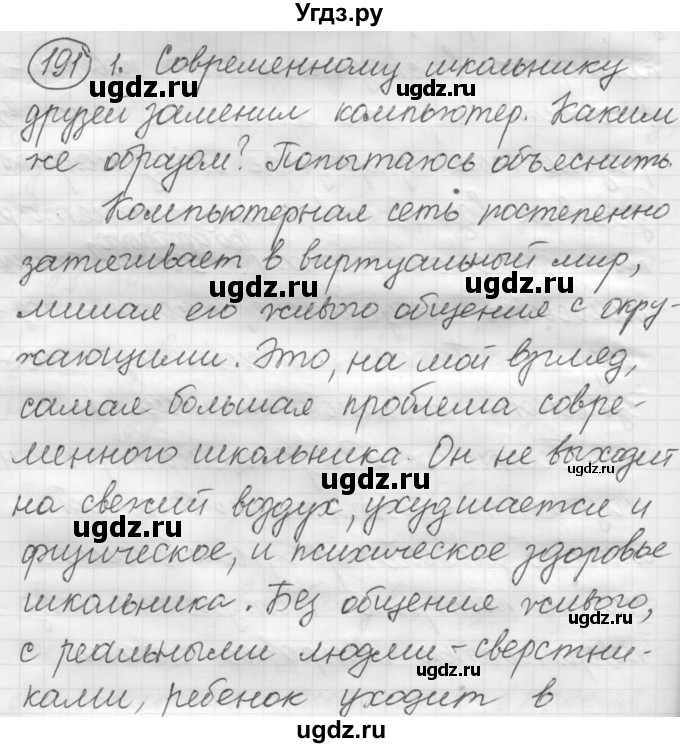 Угдз.ру
191 1. Современному школьнику
ugdz.ru ugdz.ru
друзей заменил компьютер. Каким
же образом? Попытаюсь объяснить.
Компьютерная сеть постепенно
ugdz.ru
затягивает в виртуальный мир,
ugdz.ru
лишая его живого общения с окру-
жающими. Это, на мой взгляд,
ugdz.ru
самая большая проблема совре-
менного школьника. Он не выходит
ugdz.ru
на свежий воздух, ухудшается и
ugdz.ru
физическое, и психическое здоровье
школьника. Без общения живого,
ugdz.ru
с реальными людми - сверстни-
ugdz.ru
ками, ребенок уходит в
ugdz.ru